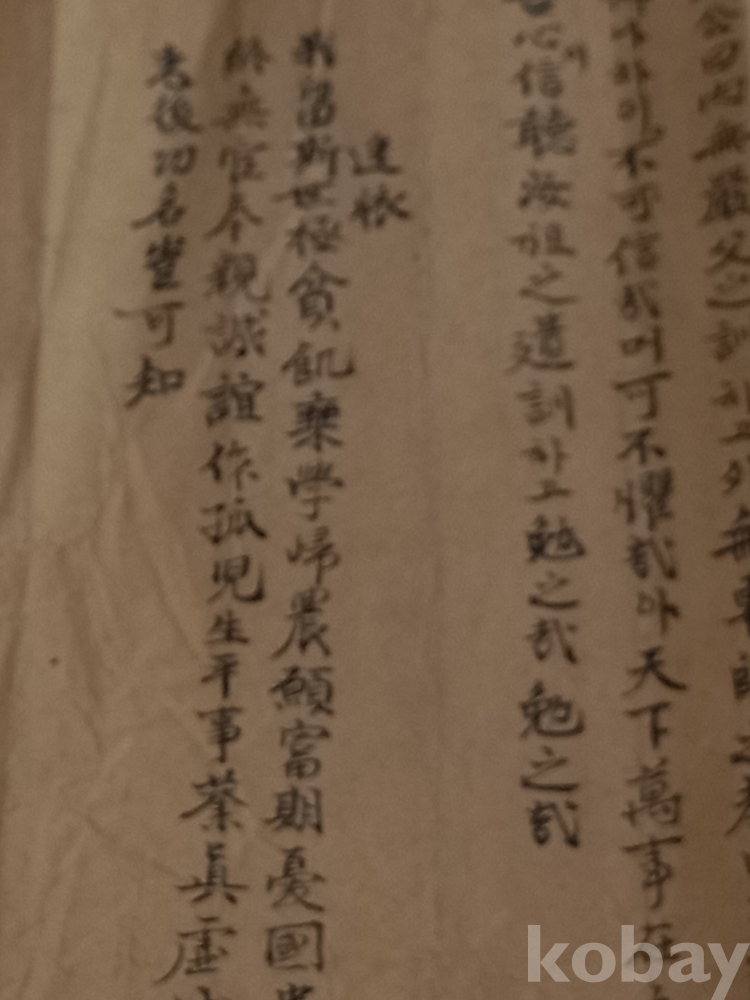 公曰內無嚴父之訓하고外無
不可信哉며可不懼哉아天下萬事在
心信聽汝祖之遺訓하고勉之哉勉之哉
達恨
我留斯世極貧飢棄學歸農願富期憂國
終無官奉親誠誼作孤兒生平事業眞虛
老後功名豈可知
kobay